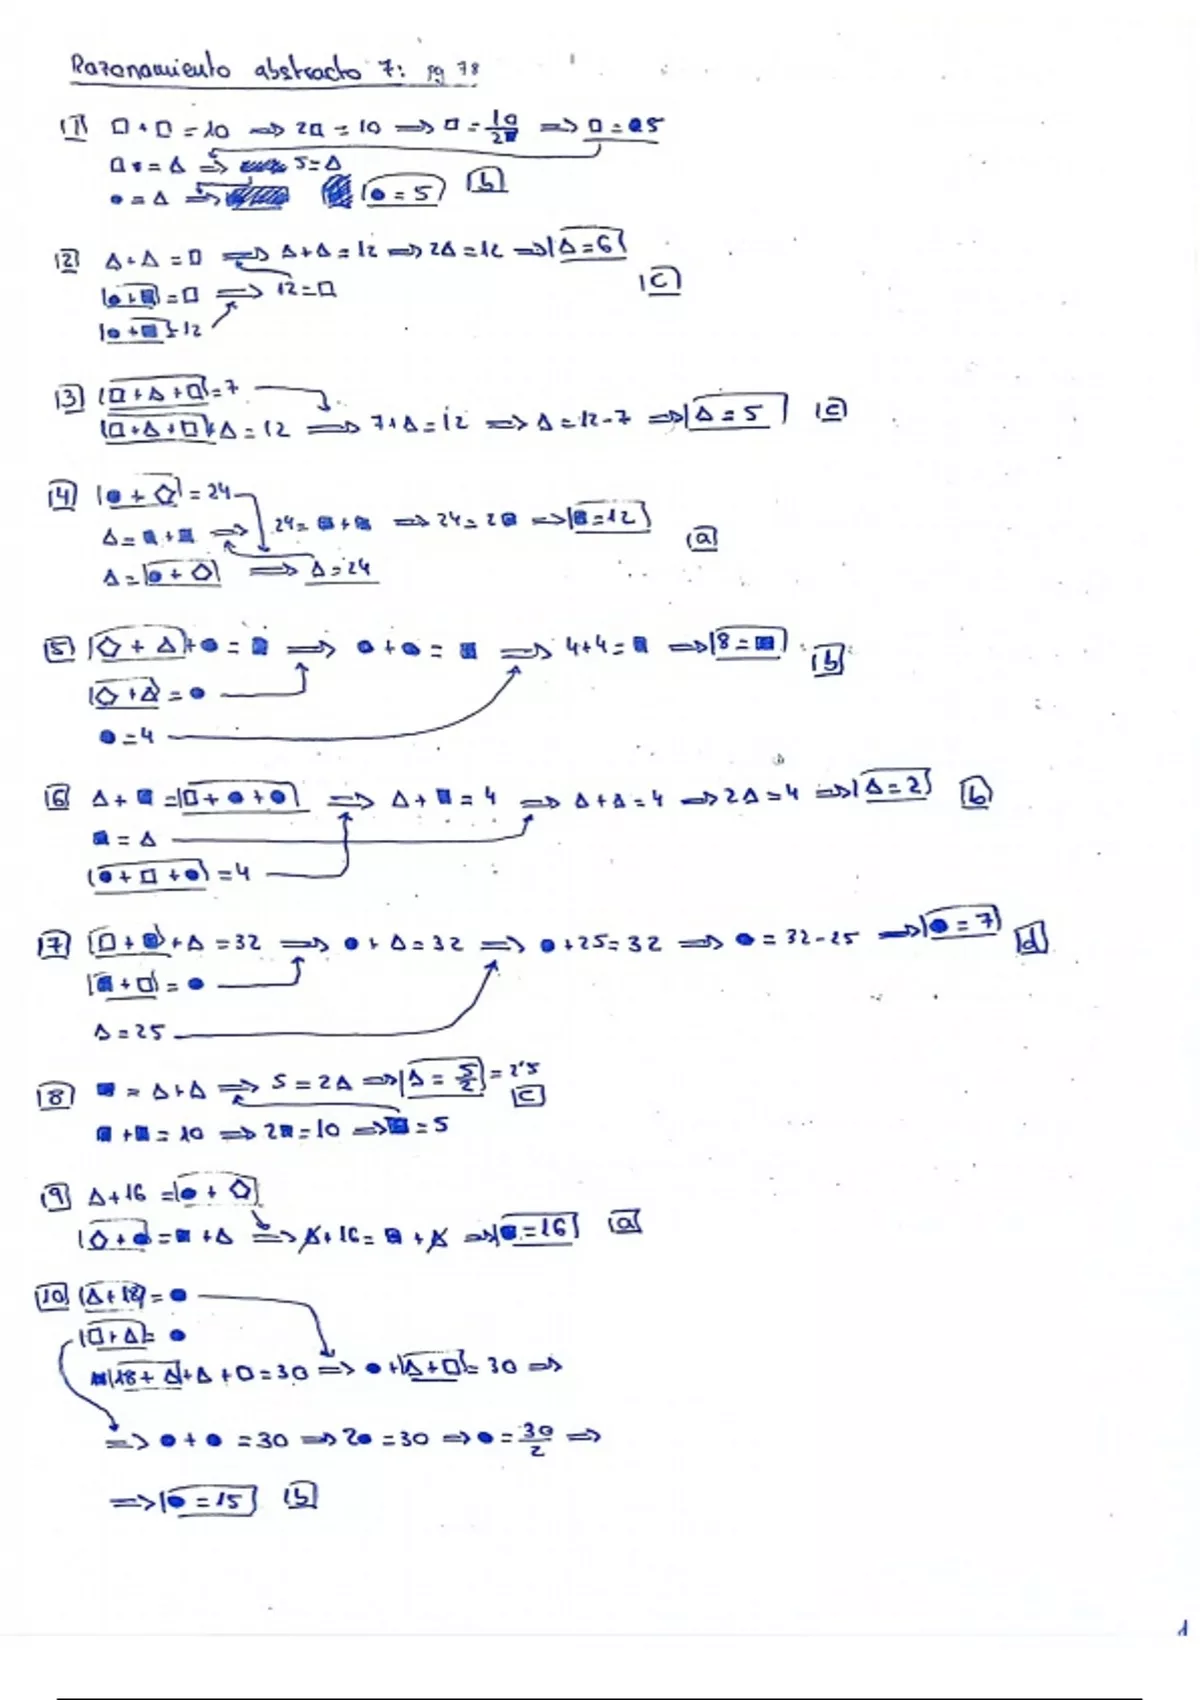 Razonamiento abstracto 7: pg 78
1) □ + □ = 10 ⟹ 2□ = 10 ⟹ □ = 10/2 ⟹ □ = 5
□ = △ ⟹ 5 = △
● = △ ⟹ ● = 5 b
2) △ + △ = □ ⟹ △ + △ = 12 ⟹ 2△ = 12 ⟹ △ = 6
● + ■ = □ ⟹ 12 = □ c
● + ■ = 12
3) □ + △ + □ = 7
□ + △ + □ + △ = 12 ⟹ 7 + △ = 12 ⟹ △ = 12 - 7 ⟹ △ = 5 c
4) ● + ⬠ = 24
△ = ■ + ■ ⟹ 24 = ■ + ■ ⟹ 24 = 2■ ⟹ ■ = 12 a
△ = ● + ⬠ ⟹ △ = 24
5) ⬠ + △ + ● = ■ ⟹ ● + ● = ■ ⟹ 4 + 4 = ■ ⟹ 8 = ■ b
⬠ + △ = ●
● = 4
6) △ + ■ = □ + ● + ● ⟹ △ + ■ = 4 ⟹ △ + △ = 4 ⟹ 2△ = 4 ⟹ △ = 2 b
■ = △
● + □ + ● = 4
7) □ + ■ + △ = 32 ⟹ ● + △ = 32 ⟹ ● + 25 = 32 ⟹ ● = 32 - 25 ⟹ ● = 7 d
■ + □ = ●
△ = 25
8) ■ = △ + △ ⟹ 5 = 2△ ⟹ △ = 5/2 = 2'5 c
■ + ■ = 10 ⟹ 2■ = 10 ⟹ ■ = 5
9) △ + 16 = ● + ⬠
⬠ + ● = ■ + △ ⟹ △ + 16 = ■ + △ ⟹ ■ = 16 a
10) △ + 18 = ●
□ + △ = ●
18 + △ + △ + □ = 30 ⟹ ● + △ + □ = 30 ⟹
⟹ ● + ● = 30 ⟹ 2● = 30 ⟹ ● = 30/2 ⟹
⟹ ● = 15 b
1